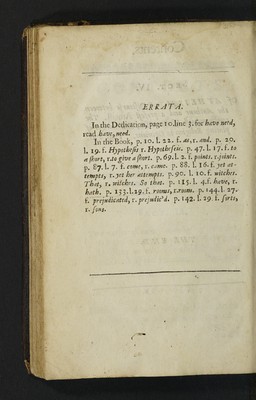 ERRATA.
In the Dedication, page 10. line 3. for have need,
read have, need.
In the Book, p. 10. l. 22. f. as, r. and. p. 20.
l. 19. f. Hypothesis r. Hypotheses. p. 47. l. 17. f. to
a short, r. to give a short. p. 69. l. 2. f. points. r. joints.
p. 87. l. 7. f. come, r. came. p. 88. l. 16. f. yet at-
tempts, r. yet her attempts. p. 90. l. 10. f. witches.
That, r. witches. So that. p. 115. l. 4. f. have, r.
hath. p. 133. l. 19. f. rooms, r. room. p. 144. l. 27.
f. prejudicated, r. prejudic'd. p. 142. l. 29. f. sorts,
r. sons.